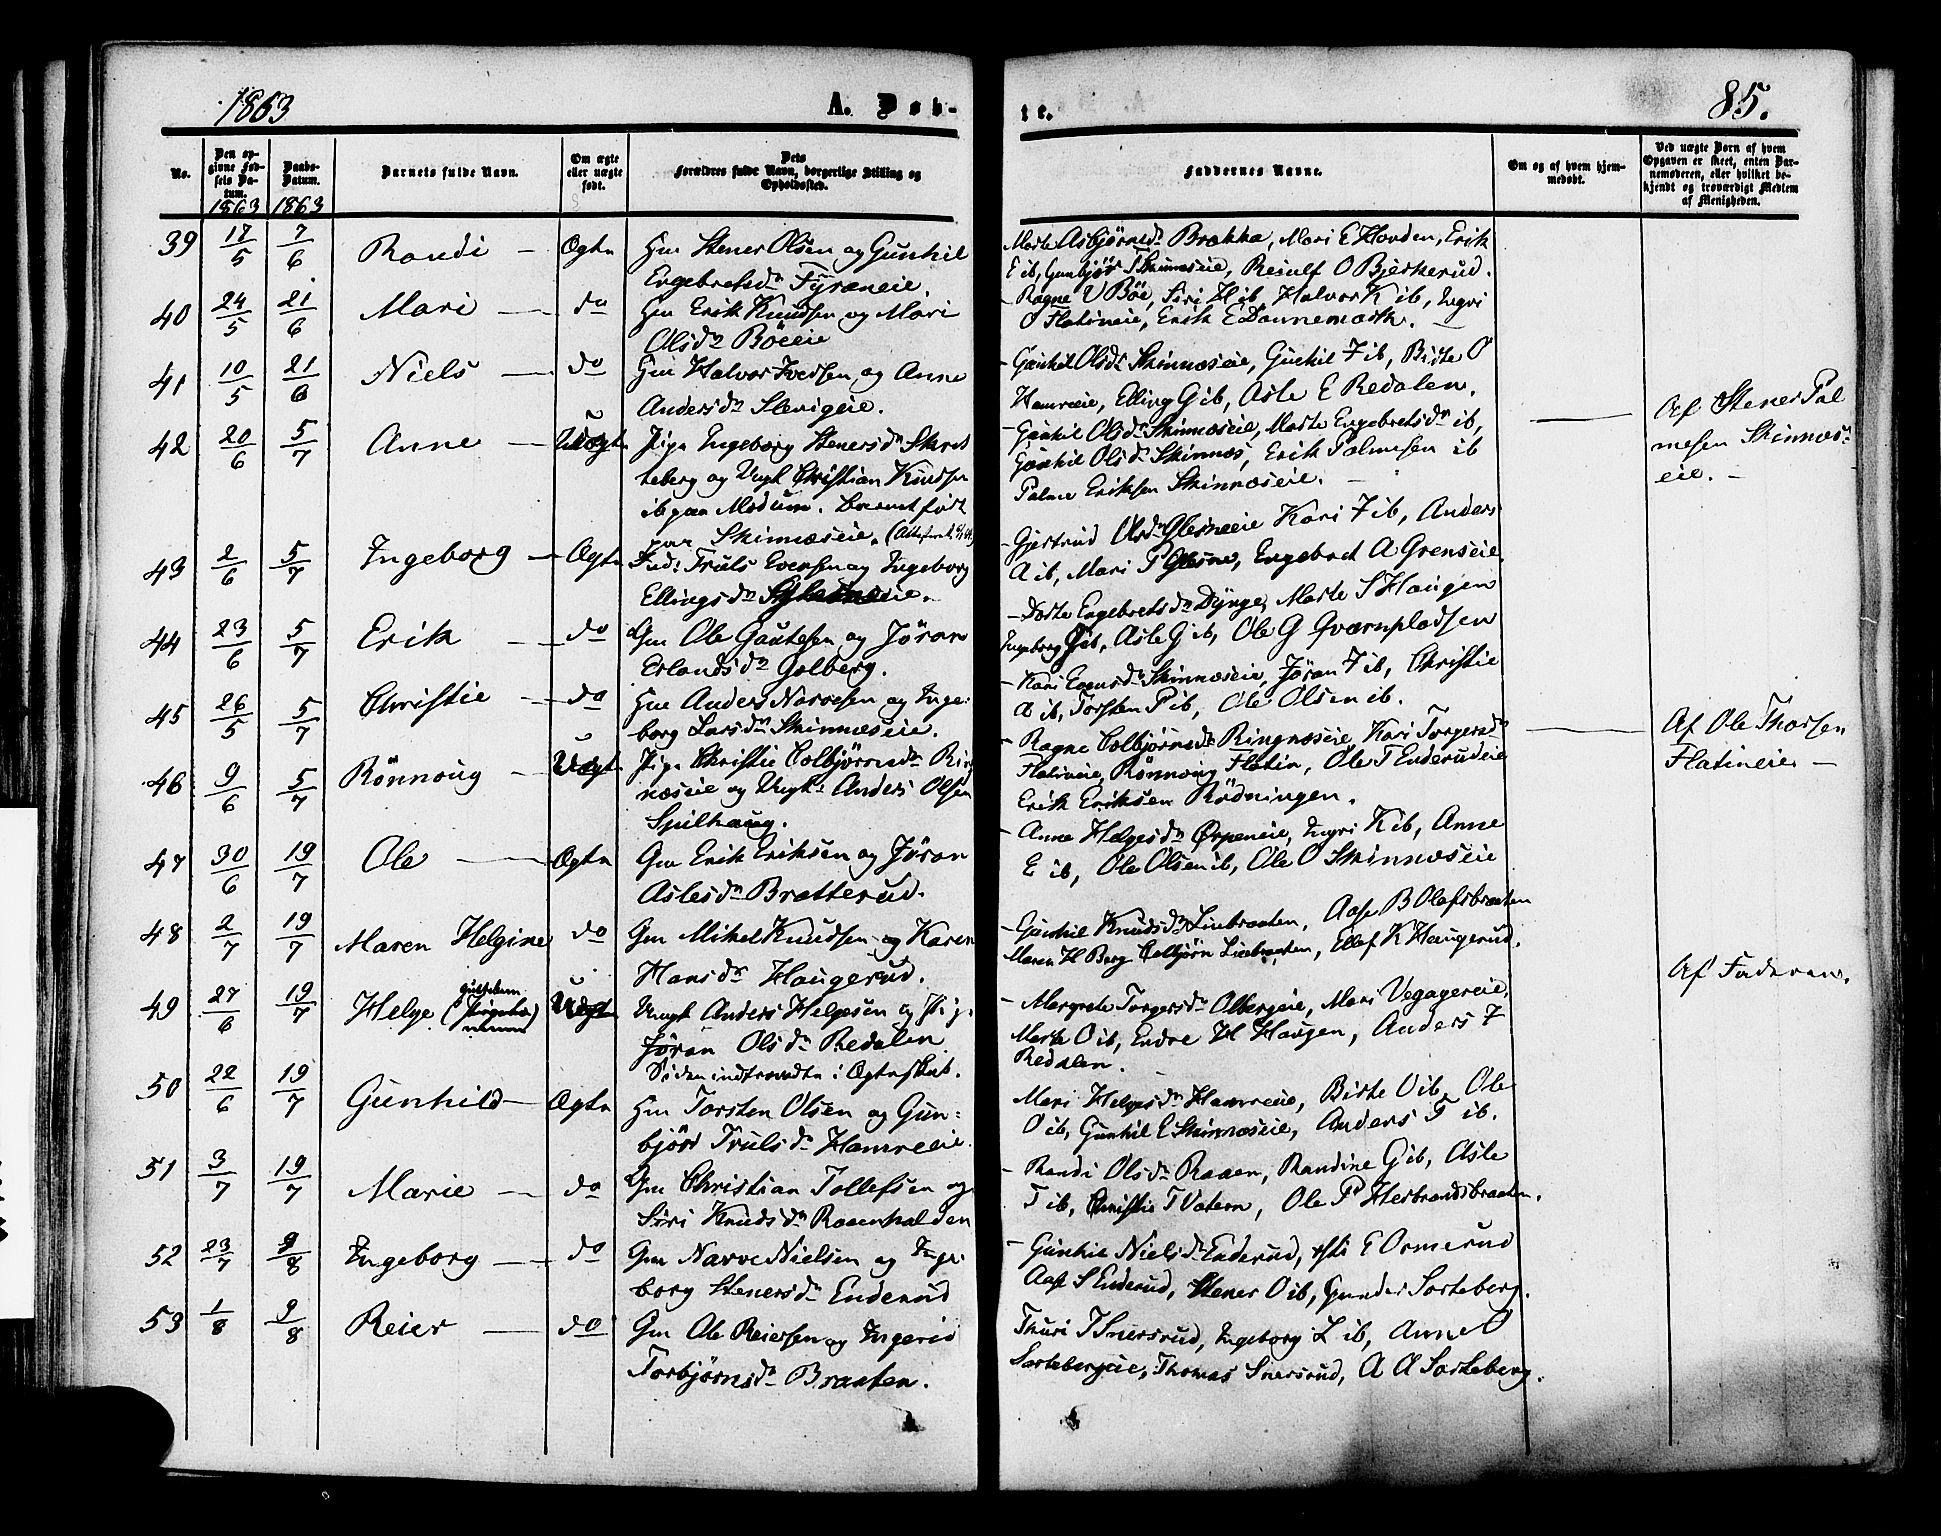 1863
A. Døb-
te.
85.
No.
Den op-
givne Fød-
sels Da-
tum.
Daabs-
Datum.
Barnets fulde Navn.
Om ægte
eller uægte
født.
Dets
Forældres fulde Navn, borgerlige Stilling og
Opholdssted.
Faddernes Navne.
Om og af hvem hjem-
medøbt.
Ved uægte Børn af hvem
Opgaven er skeet, enten Bar-
nemoderen, eller hvilket be-
kjendt og troværdigt Medlem
af Menigheden.
1863 1863
39 17/5 7/6 Randi — Ægte Hm Stener Olsen og Gunhil
Engebretsdr
Marte Asbjørnsdr Brakka, Mari E Hovden, Erik
E ib, Gunbjør T Skinnæseie, Reiulf O Bjerkerud.
40 24/5 21/6 Mari — do Hm Erik Knudsen og Mari
Olsdr Böeeie
Ragne V Böe, Siri H ib, Halvor K ib, Ingri
O Flatineie, Erik E Dannemark. —
41 10/5 21/6 Niels — do Hm Halvor Ivedsen og Anne
Andersdr
- Gunhil Olsdr Skinnæseie, Gunhil T ib, Birte O
Hamreeie, Elling G ib, Asle E Redalen.
42 20/6 5/7 Anne — Uægte Pige Ingeborg Stenersdr Skret
teberg og Ungk Christian Knudsen
ib paa Modum. Barnet født
paa Skinnæseie.
- Gunhil Olsdr Skinnæseie, Marte Engebretsdr ib,
Gunhil Olsdr Skinnæs, Erik Palmesen ib
Palme Eriksen Skinnæseie. —
Af Stener Pal
mesen Skinnæs-
eie. —
43 2/6 5/7 Ingeborg — Ægte Ind: Truls Evensen og Ingeborg
Ellingsdr
- Gjertrud Olsdr Glesneeie Kari T ib, Anders
A ib, Mari P Glesne, Engebret A Grenseie
44 23/6 5/7 Erik — do Gm Ole Gautesen og Jöran
Erlandsdr Golberg.
- Dorte Engebretsdr Dynge, Marte S Haugen
Ingeborg G ib, Asle G ib, Ole G Qværnpladsen
45 26/5 5/7 Christie — do Hm Anders Narvesen og Inge-
borg Larsdr Skinnæseie.
- Kari Evensdr Skinnæseie, Jöran T ib, Christie
A ib, Torsten P ib, Ole Olsen ib.
46 9/6 5/7 Rönnoug — Uægte Pige Christie Colbjörnsdr Ring
næseie og Ungk: Anders Olsen
Spilhaug.
- Ragne Colbjörnsdr Ringnæseie, Kari Torgersdr
Flatineie, Rönnoug Flatin, Ole T Enderudeie
Erik Eriksen Rödningen.
Af Ole Thorsen
Flatineie —
47 30/6 19/7 Ole — Ægte Gm Erik Eriksen og Jöran
Aslesdr Bratterud.
- Anne Helgesdr Ørpeneie, Ingri K ib, Anne
E ib, Ole Olsen ib, Ole O Skinnæseie
48 2/7 19/7 Maren Helgine do Gm Mikel Knudsen og Karen
Hansdr Haugerud.
- Gunhil Knudsdr Linebraaten, Aase B Olafsbraaten
Maren H Berg Colbjörn Linebraaten, Ellef K Haugerud.
49 27/6 19/7 Helge Uægte Ungk Anders Helgesen og Pige
Jöran Olsdr Redalen
Siden indtraadte i Ægteskab.
- Margrete Torgersdr Albergeie, Mari Vegagereie,
Marte O ib, Endre H Haugen, Anders T
Redalen.
Af Faderen.
50 22/6 19/7 Gunhild — Ægte Hm Torsten Olsen og Gun-
björ Trulsdr Hamreeie.
Mari Helgesdr Hamreeie, Birte O ib, Ole
O ib, Gunhil E Skinnæseie, Anders T ib.
51 3/7 19/7 Marie — do Gm Christian Tollefsen og
Siri Knudsdr Rosenhalden
- Randi Olsdr Raaen, Randine G ib, Asle
T ib, Christie T Vatern, Ole P Herbrandsbraaten.
52 23/7 9/8 Ingeborg — do Gm Narve Nielsen og Inge-
borg Stenersdr Enderud
- Gunhil Nielsdr Enderud, E Ormerud
Aase S Enderud, Stener O ib, Gunder Sorteberg.
53 1/8 9/8 Reier — do Gm Ole Reiersen og Ingerid
Torbjörnsdr Braaten.
Thuri T Snersrud, Ingeborg L ib, Anne O
Sortebergeie, Thomas Snersrud, A A Sorteberg.